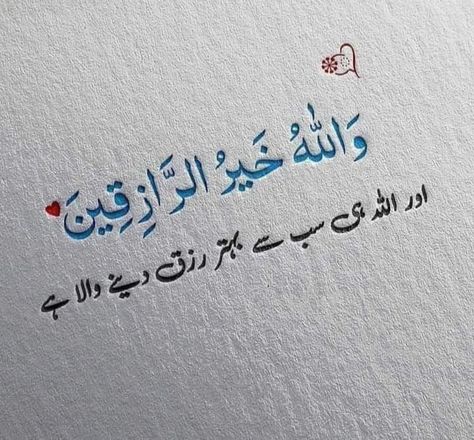 وَاللّٰهُ خَيرُ الرَّازِقِينَ
اور اللہ ہی سب سے بہتر رزق دینے والا ہے